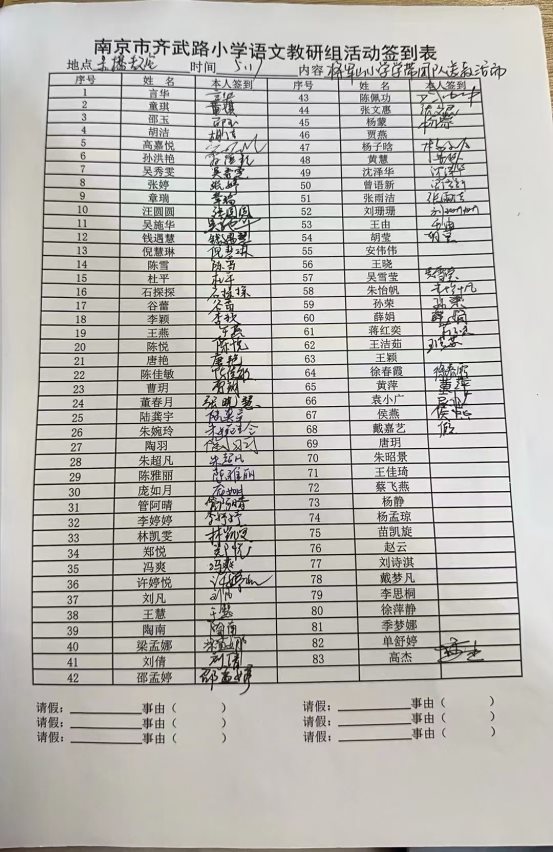 南京市齐武路小学语文教研组活动签到表
地点 时间 5.17 内容 将军山小学学带团队送教活动
序号 姓 名 本人签到 序号 姓 名 本人签到
1 言华 言华 43 陈佩功
2 童琪 童琪 44 张文惠 张文惠
3 邵玉 邵玉 45 杨蒙 杨蒙
4 胡洁 胡洁 46 贾燕
5 高嘉悦 47 杨子晗 杨子晗
6 孙洪艳 孙洪艳 48 黄慧 黄慧
7 吴秀雯 吴秀雯 49 沈泽华 沈泽华
8 张婷 张婷 50 曾语新 曾语新
9 章瑞 章瑞 51 张雨洁 张雨洁
10 汪圆圆 汪圆圆 52 刘珊珊 刘珊珊
11 吴施华 吴施华 53 王由 王由
12 钱遇慧 钱遇慧 54 胡莹 胡莹
13 倪慧琳 倪慧琳 55 安伟伟
14 陈雪 陈雪 56 王晓
15 杜平 杜平 57 吴雪莹 吴雪莹
16 石探探 石探探 58 朱怡帆 朱怡帆
17 谷蕾 谷蕾 59 孙荣 孙荣
18 李颖 李颖 60 薛娟 薛娟
19 王燕 王燕 61 蒋红奕
20 陈悦 陈悦 62 王洁茹 王洁茹
21 唐艳 唐艳 63 王颖
22 陈佳敏 陈佳敏 64 徐春霞 徐春霞
23 曹玥 曹玥 65 黄萍 黄萍
24 董春月 66 袁小广
25 陆龚宇 陆龚宇 67 侯燕 侯燕
26 朱婉玲 朱婉玲 68 戴嘉艺 假
27 陶羽 陶羽 69 唐玥
28 朱超凡 朱超凡 70 朱昭景
29 陈雅丽 陈雅丽 71 王佳琦
30 庞如月 庞如月 72 蔡飞燕
31 管阿晴 管阿晴 73 杨静
32 李婷婷 李婷婷 74 杨孟琼
33 林凯雯 林凯雯 75 苗凯旋
34 郑悦 郑悦 76 赵云
35 冯爽 冯爽 77 刘诗淇
36 许婷悦 许婷悦 78 戴梦凡
37 刘凡 刘凡 79 李思桐
38 王慧 王慧 80 徐萍静
39 陶南 陶南 81 季梦娜
40 梁孟娜 梁孟娜 82 单舒婷
41 刘倩 刘倩 83 高杰
42 邵孟婷 邵孟婷
请假：________事由（ ） 请假：________事由（ ）
请假：________事由（ ） 请假：________事由（ ）
请假：________事由（ ） 请假：________事由（ ）